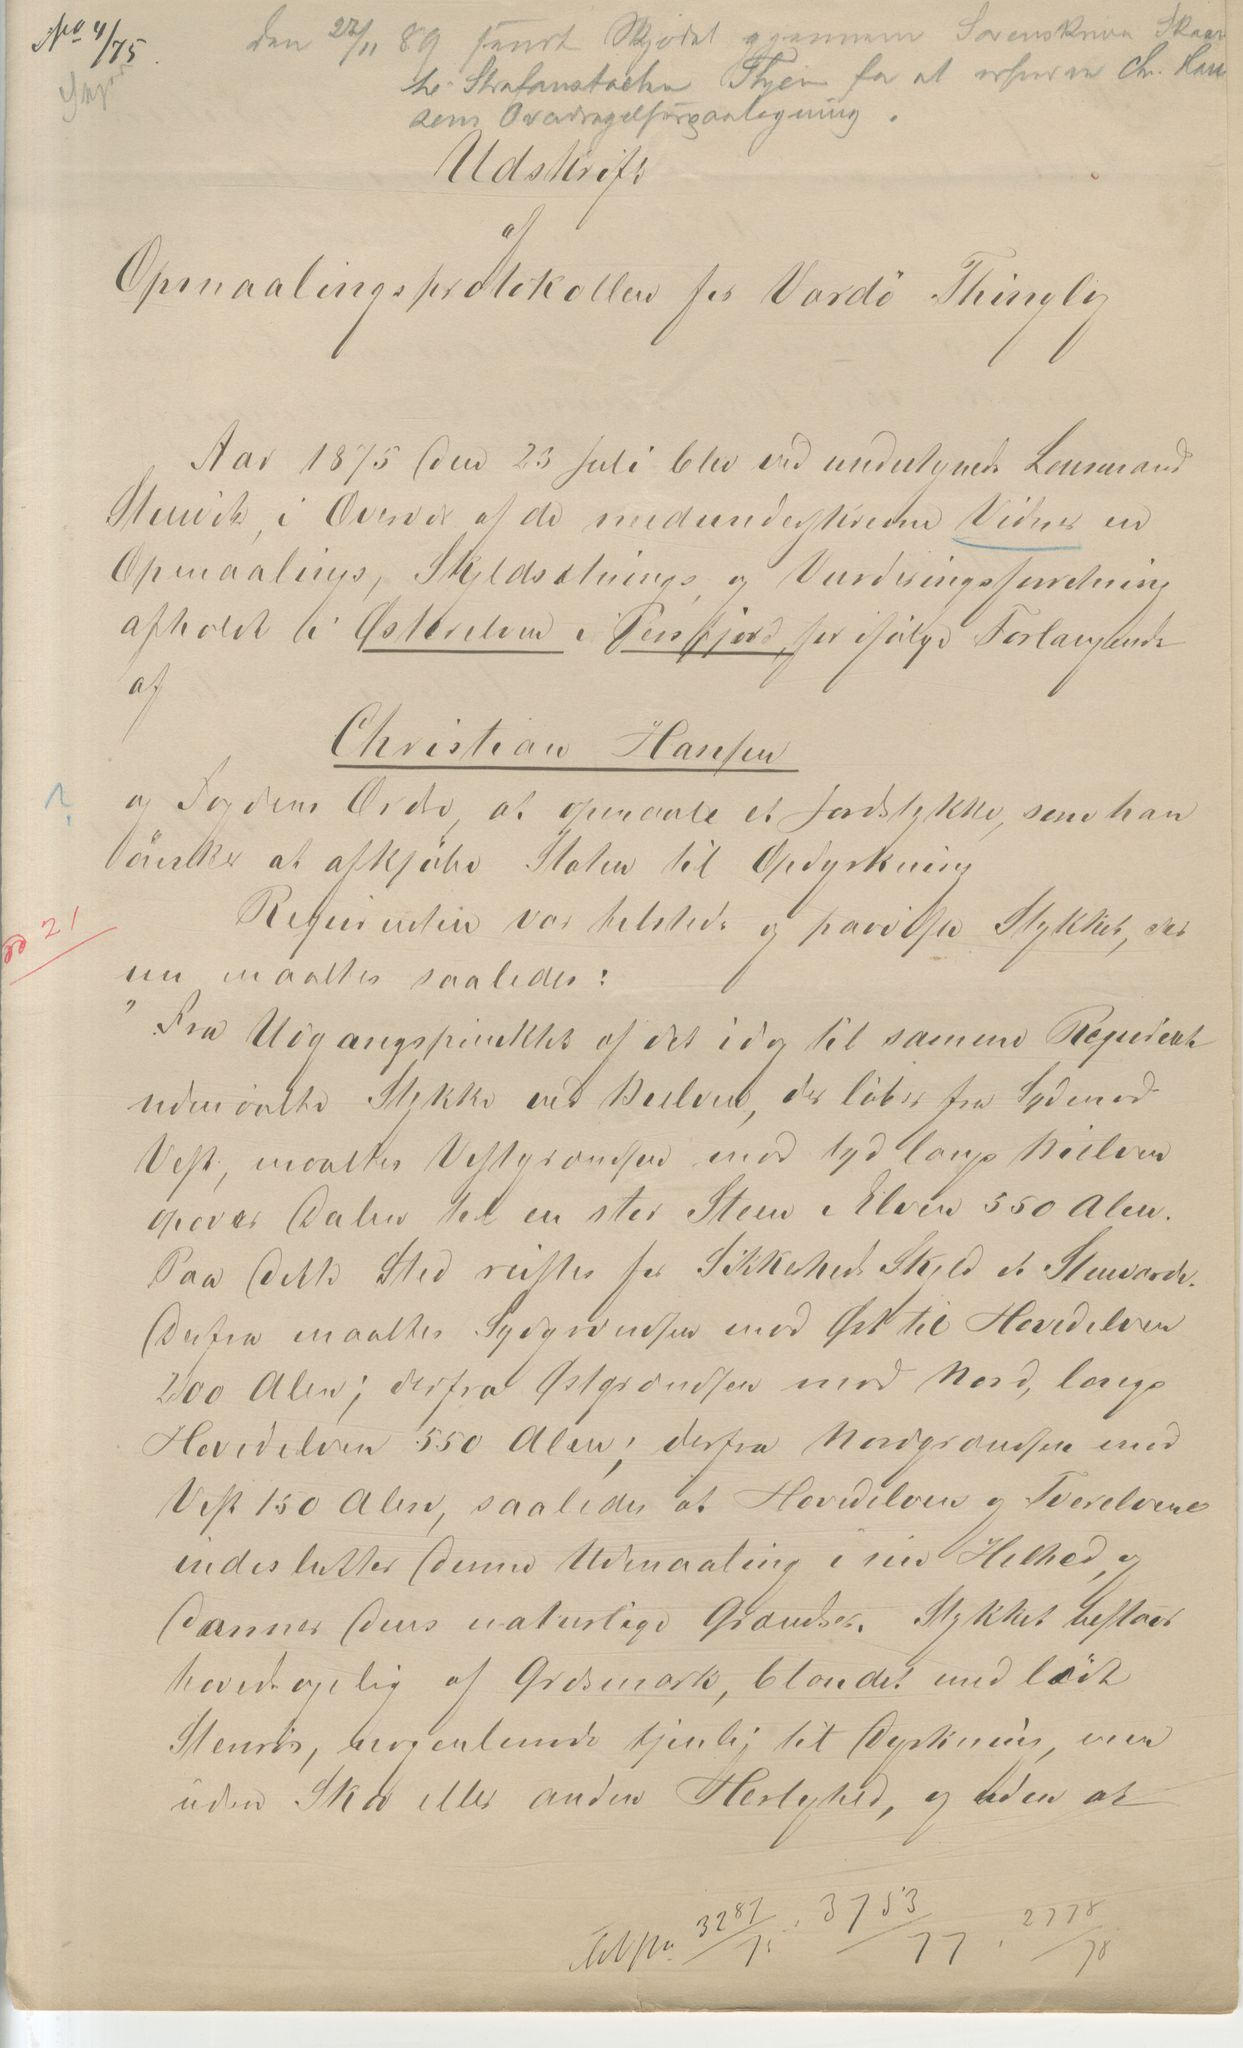 No 4/75.
Den 22/11 89 sendt Skjødet gjennem Sorenskriver
til Strafanstalten for at erhverve Chr. Han
sens Overdragelsespaategning.
Udskrift
af
Opmaalingsprotokollen for Vardö Thinglag
Aar 1875 den 23 Juli blev ved undertegnede Lensmand
i Overvær af de medunderskrevne Vidner en
Opmaalings, Skyldsætnings, og Vurderingsforretning
afholdt i Østerelven i Persfjord, for ifølge Forlangende
af
Christian Hansen
og Fogdens Ordre, at opmaale et Jordstykke, som han
önsker at afkjöbe Staten til Opdyrkning
Requirenten var tilstede og paaviste Stykket, der
nu maaltes saaledes:
" Fra Udgangspunktet af det idag til samme Requirent
udmaalte Stykke ved Bielven, der löber fra Syd mod
Vest, maaltes Vestgrændsen mod Syd langs Bielven
opover Dalen til en stor Steen i Elven 550 Alen.
Paa dette Sted reistes for Sikkerheds Skyld et Steenvarde.
Derfra maaltes Sydgrændsen mod Øst til Hovedelven
200 Alen; derfra Østgrændsen mod Nord, langs
Hovedelven 550 Alen; derfra Nordgrændsen mod
Vest 150 Alen, saaledes at Hovedelven og Tverelvene
indeslutter denne Udmaaling i sin Helhed, og
danner dens naturlige Grændser. Stykket bestaar
hovedsagelig af Græsmark, blandet med lödt
Steenrös, nogenlunde tjenlig til Dyrkning, men
uden Skov eller anden Herlighed, og uden at
3287/75. 3753/77. 2778/78
№ 21
?